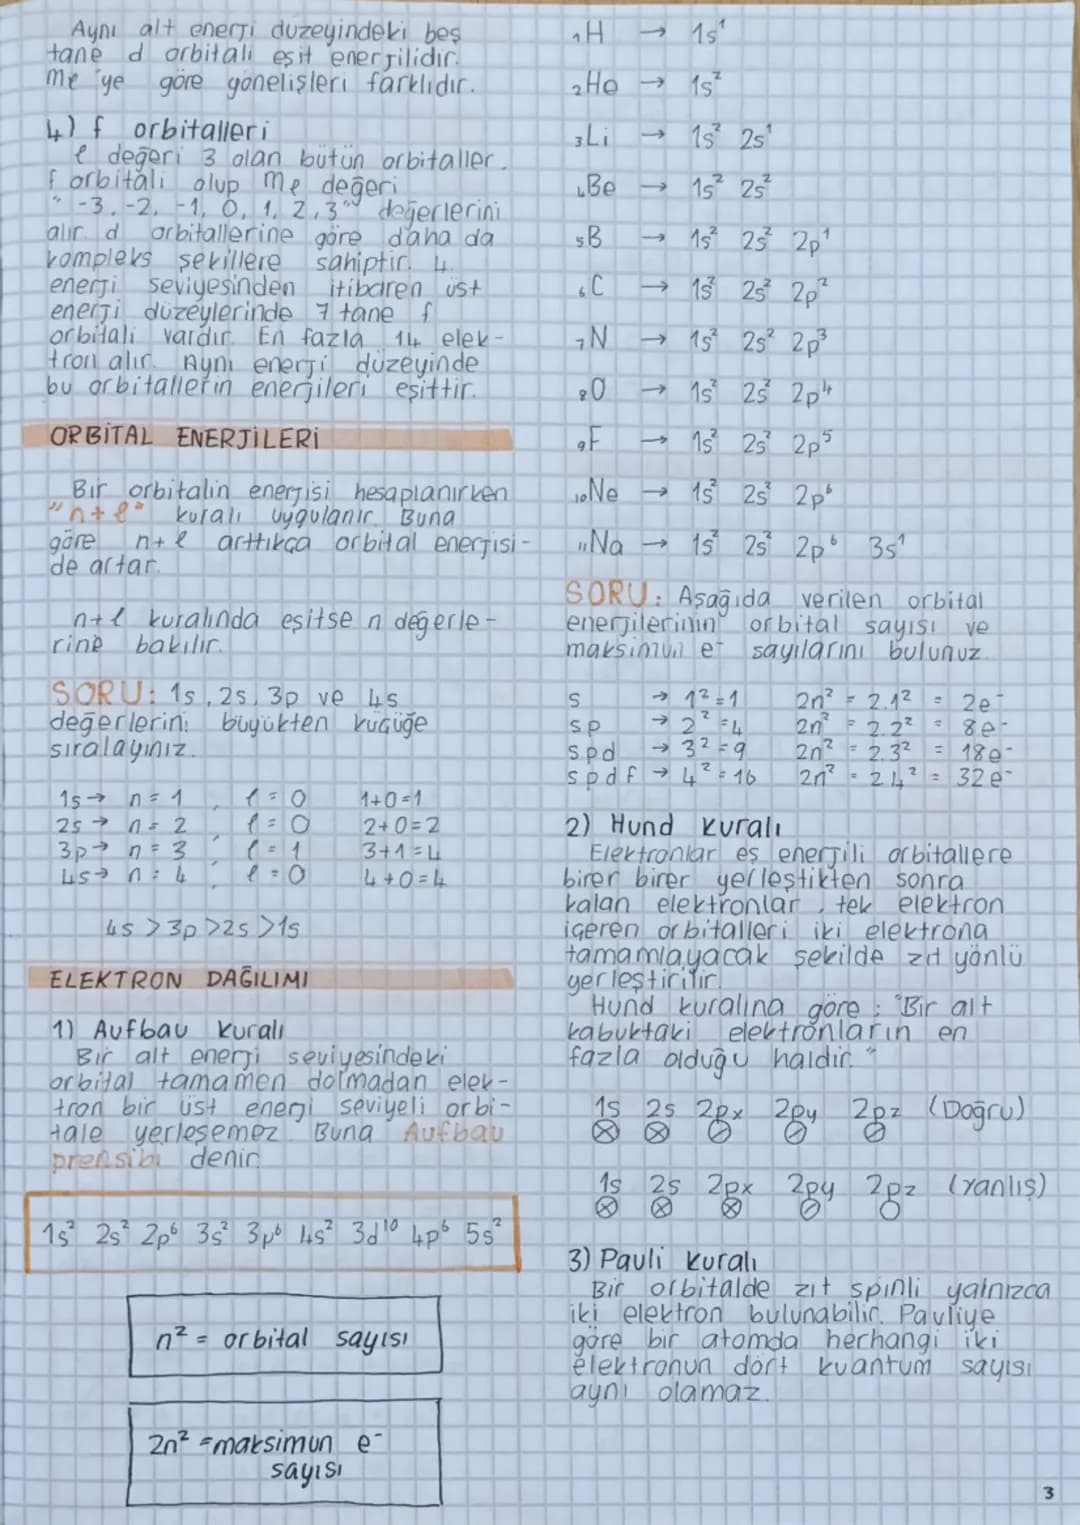 Aynı alt enerji düzeyindeki beş
tane d orbitali eşit enerjilidir.
mℓ'ye göre yönelişleri farklıdır.
4) f orbitalleri
ℓ değeri 3 olan bütün orbitaller
f orbitali olup mℓ değeri
"-3, -2, -1, 0, 1, 2, 3" değerlerini
alır. d orbitallerine göre daha da
kompleks şekillere sahiptir. 4.
enerji seviyesinden itibaren üst
enerji düzeylerinde 7 tane f
orbitali vardır. En fazla 14 elek-
tron alır. Aynı enerji düzeyinde
bu orbitallerin enerjileri eşittir.
ORBİTAL ENERJİLERİ
Bir orbitalin enerjisi hesaplanırken
"n+ℓ" kuralı uygulanır. Buna
göre n+ℓ arttıkça orbital enerjisi-
de artar.
n+ℓ kuralında eşitse n değerle-
rine bakılır.
SORU: 1s, 2s, 3p ve 4s
değerlerini büyükten küçüğe
sıralayınız.
1s → n = 1 , ℓ = 0 1+0=1
2s → n = 2 , ℓ = 0 2+0=2
3p → n = 3 , ℓ = 1 3+1=4
4s → n = 4 , ℓ = 0 4+0=4
4s > 3p > 2s > 1s
ELEKTRON DAĞILIMI
1) Aufbau kuralı
Bir alt enerji seviyesindeki
orbital tamamen dolmadan elek-
tron bir üst enerji seviyeli orbi-
tale yerleşemez. Buna Aufbau
prensibi denir.
1s² 2s² 2p⁶ 3s² 3p⁶ 4s² 3d¹⁰ 4p⁶ 5s²
n² = orbital sayısı
2n² = maksimun e⁻
sayısı
₁H → 1s¹
₂He → 1s²
₃Li → 1s² 2s¹
₄Be → 1s² 2s²
₅B → 1s² 2s² 2p¹
₆C → 1s² 2s² 2p²
₇N → 1s² 2s² 2p³
₈O → 1s² 2s² 2p⁴
₉F → 1s² 2s² 2p⁵
₁₀Ne → 1s² 2s² 2p⁶
₁₁Na → 1s² 2s² 2p⁶ 3s¹
SORU: Aşağıda verilen orbital
enerjilerinin orbital sayısı ve
maksimun e⁻ sayılarını bulunuz.
s → 1² = 1 2n² = 2.1² = 2e⁻
sp → 2² = 4 2n² = 2.2² = 8e⁻
spd → 3² = 9 2n² = 2.3² = 18e⁻
spdf → 4² = 16 2n² = 2.4² = 32e⁻
2) Hund kuralı
Elektronlar eş enerjili orbitallere
birer birer yerleştikten sonra
kalan elektronlar, tek elektron
içeren orbitalleri iki elektrona
tamamlayacak şekilde zıt yönlü
yerleştirilir.
Hund kuralına göre ; "Bir alt
kabuktaki elektronların en
fazla olduğu haldir."
1s 2s 2px 2py 2pz (Doğru)
1s 2s 2px 2py 2pz (Yanlış)
3) Pauli kuralı
Bir orbitalde zıt spinli yalnızca
iki elektron bulunabilir. Pauliye
göre bir atomda herhangi iki
elektronun dört kuantum sayısı
aynı olamaz.
3